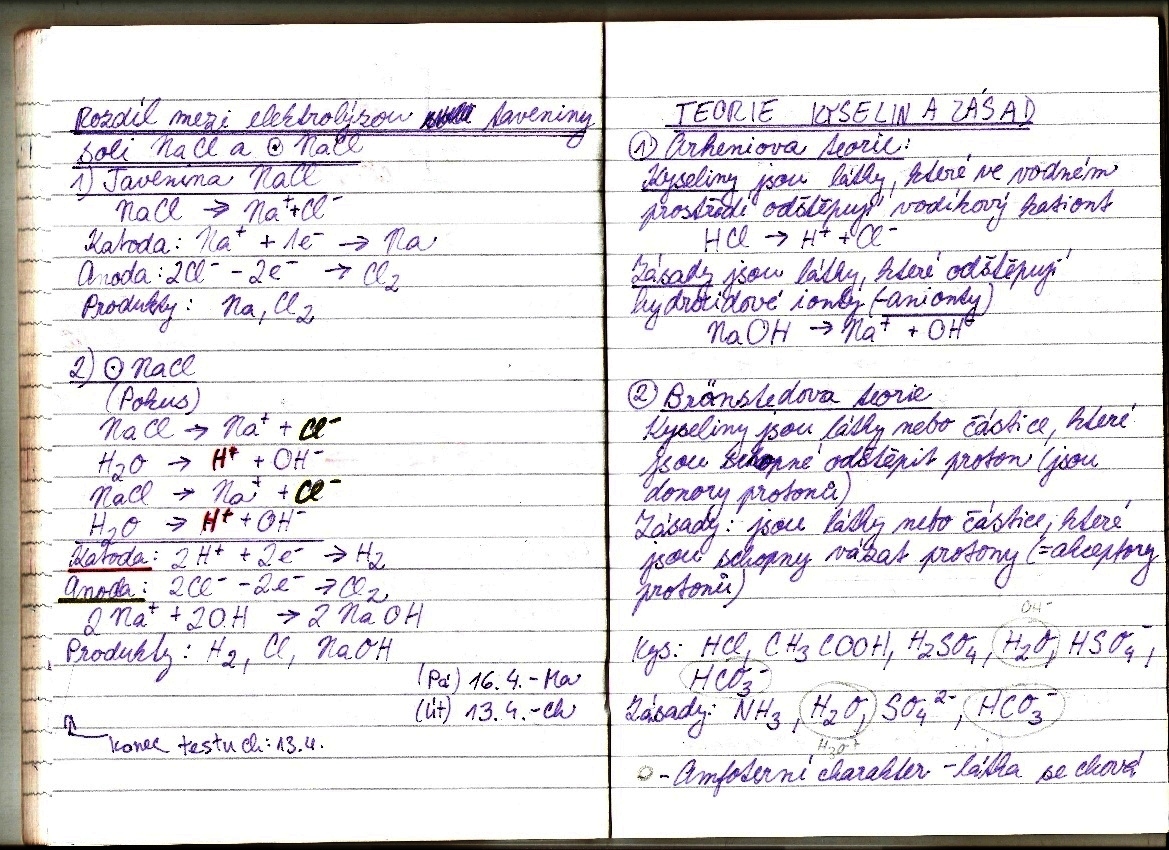 Rozdíl mezi elektrolýzou taveniny
soli NaCl a ⊙ NaCl
1) Tavenina NaCl
NaCl → Na⁺+Cl⁻
Katoda: Na⁺ + 1e⁻ → Na
Anoda: 2Cl⁻ - 2e⁻ → Cl₂
Produkty: Na, Cl₂
2) ⊙ NaCl
(Pokus)
NaCl → Na⁺ + Cl⁻
H₂O → H⁺ + OH⁻
NaCl → Na⁺ + Cl⁻
H₂O → H⁺ + OH⁻
Katoda: 2H⁺ + 2e⁻ → H₂
Anoda: 2Cl⁻ - 2e⁻ → Cl₂
2Na⁺ + 2OH → 2NaOH
Produkty: H₂, Cl, NaOH
(Pá) 16.4. - Ma
(Út) 13.4. - Ch
konec testu ch: 13.4.
TEORIE KYSELIN A ZÁSAD
① Arheniova teorie:
Kyseliny jsou látky, které ve vodném
prostředí odštěpují vodíkový kationt
HCl → H⁺ + Cl⁻
Zásady jsou látky, které odštěpují
hydroxidové ionty (-anionty)
NaOH → Na⁺ + OH⁻
② Brönstedova teorie
Kyseliny jsou látky nebo částice, které
jsou schopné odštěpit proton (jsou
donory protonů)
Zásady: jsou látky nebo částice, které
jsou schopny vázat protony (=akceptory
protonů)
OH⁻
Kys: HCl, CH₃COOH, H₂SO₄, H₂O, HSO₄⁻,
HCO₃⁻
Zásady: NH₃, H₂O, SO₄²⁻, HCO₃⁻
H₃O⁺
○ - Amfoterní charakter - látka se chová